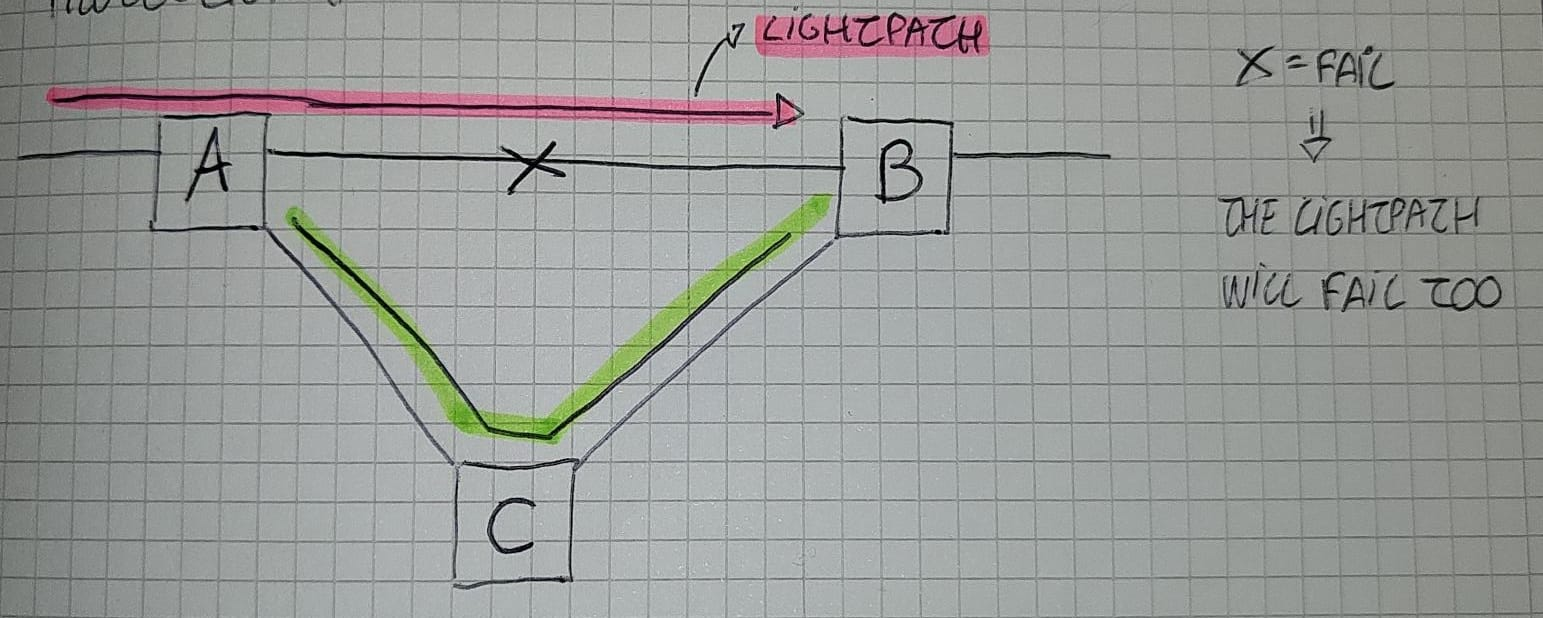 LIGHTPATH
X = FAIL
A
B
⇓
THE LIGHTPATH
WILL FAIL TOO
C